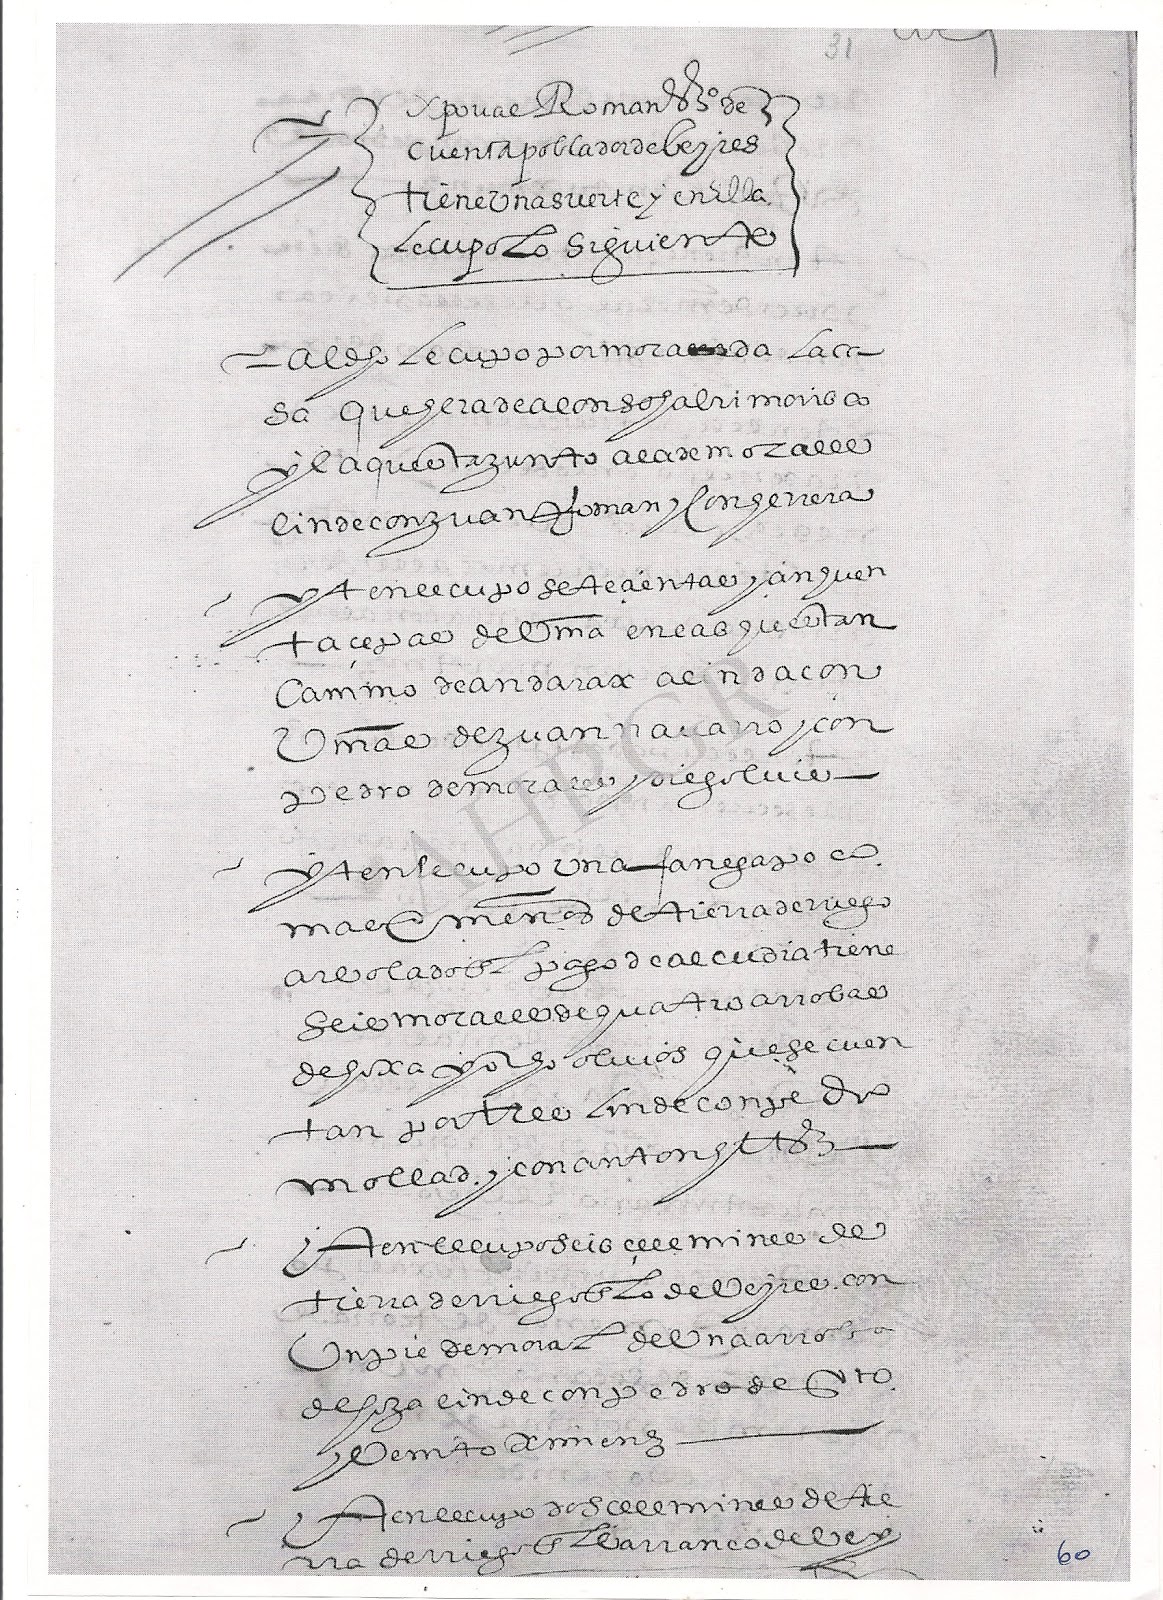 31
xpoual Roman vzo de
cuenta poblador de beyres
tiene una suerte y en illa
le cupo lo siguiente
al dho le cupo por morada la ca
sa que hera de alonso
y la que esta junto a la de morales
linde con juan Roman y con herrera
yten le cupo setecientas y cinquen
ta çepas de viña en las que estan
Camino de andarax alinda con
Viñas de juan nauarro y con
pedro de morales y diego luis
yten le cupo una fanega poco
mas o menos de tierra de riego
arbolado en el pago de alcudia tiene
seis morales de quatro arrobas
de hoxa y ocho oliuos que se cuen
tan por tres linde con pedro
mollad. y con anton
yten le cupo seis çelemines de
tierra de rriego en lo de beyres. con
Un pie de moral de Una arroba
de hoja linde con pedro de
y benito ximenz
yten le cupo dos celemines de tie
rra de rriego en el barranco de bey
AHPGR
60